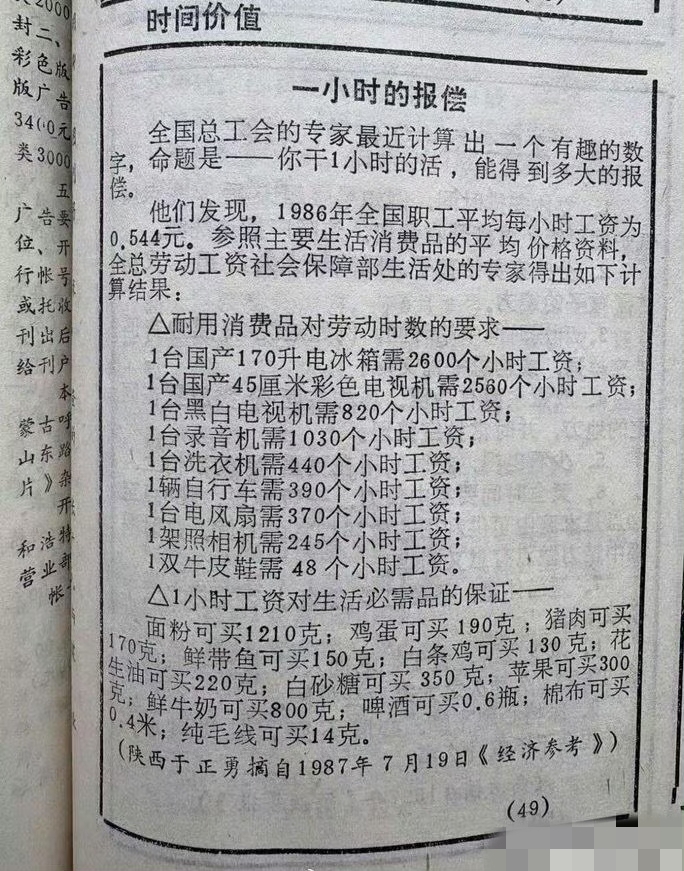 时间价值
一小时的报偿
全国总工会的专家最近计算出一个有趣的数
字，命题是——你干1小时的活，能得到多大的报
偿。
他们发现，1986年全国职工平均每小时工资为
0.544元。参照主要生活消费品的平均价格资料，
全总劳动工资社会保障部生活处的专家得出如下计
算结果：
△耐用消费品对劳动时数的要求——
1台国产170升电冰箱需2600个小时工资；
1台国产45厘米彩色电视机需2560个小时工资；
1台黑白电视机需820个小时工资；
1台录音机需1030个小时工资；
1台洗衣机需440个小时工资；
1辆自行车需390个小时工资；
1台电风扇需370个小时工资；
1架照相机需245个小时工资；
1双牛皮鞋需48个小时工资。
△1小时工资对生活必需品的保证——
面粉可买1210克；鸡蛋可买190克；猪肉可买
170克；鲜带鱼可买150克；白条鸡可买130克；花
生油可买220克；白砂糖可买350克；苹果可买300
克；鲜牛奶可买800克；啤酒可买0.6瓶；棉布可买
0.4米；纯毛线可买14克。
（陕西于正勇摘自1987年7月19日《经济参考》）
(49)